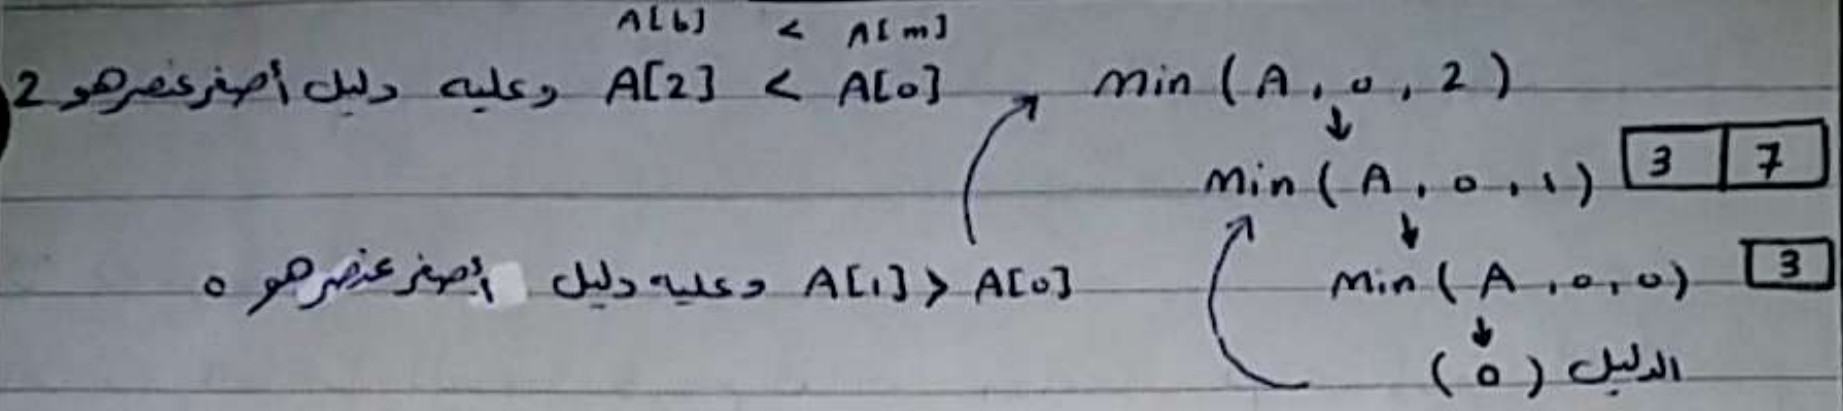 A[b] < A[m]
min ( A , 0 , 2 ) A[2] < A[0] وعليه دليل أصغر عنصر هو 2
min ( A , 0 , 1 ) 3 7
A[1] > A[0] وعليه دليل أصغر عنصر هو 0
min ( A , 0 , 0 ) 3
الدليل ( 0 )